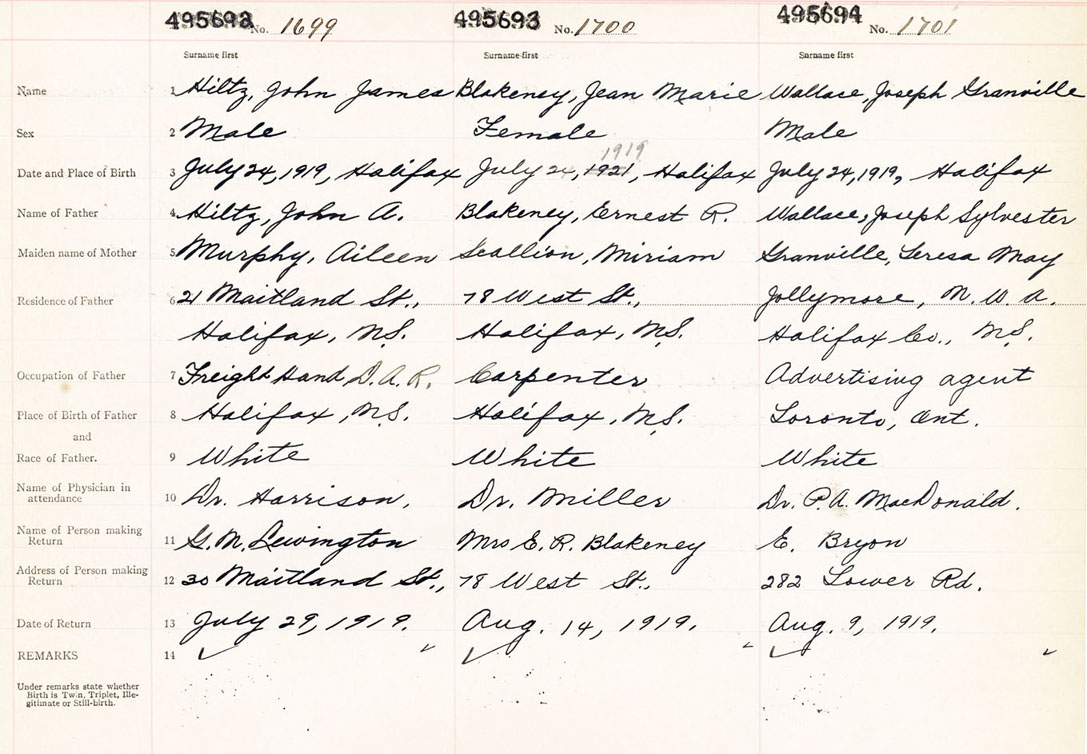 495692 No. 1699 495693 No. 1700 495694 No. 1701
Surname first Surname first Surname first
Name 1 Hiltz, John James Blakeney, Jean Marie Wallace, Joseph Granville
Sex 2 Male Female Male
1919
Date and Place of Birth 3 July 24, 1919, Halifax July 24, 1921, Halifax July 24, 1919, Halifax
Name of Father 4 Hiltz, John A. Blakeney, Ernest R. Wallace, Joseph Sylvester
Maiden name of Mother 5 Murphy, Aileen Scallion, Miriam Granville, Teresa May
Residence of Father 6 21 Maitland St., 78 West St., Jollymore, N. W. A.
Halifax, N.S. Halifax, N.S. Halifax Co., N.S.
Occupation of Father 7 Freight Hand D.A.R. Carpenter Advertising agent
Place of Birth of Father 8 Halifax, N.S. Halifax, N.S. Toronto, Ont.
and
Race of Father. 9 White White White
Name of Physician in
attendance 10 Dr. Harrison. Dr. Miller Dr. P.A. MacDonald.
Name of Person making
Return 11 G.M. Lewington Mrs E. R. Blakeney E. Bryon
Address of Person making
Return 12 30 Maitland St., 78 West St., 282 Lower Rd.
Date of Return 13 July 29, 1919. Aug. 14, 1919. Aug. 9, 1919.
REMARKS 14
Under remarks state whether
Birth is Twin, Triplet, Ille-
gitimate or Still-birth.